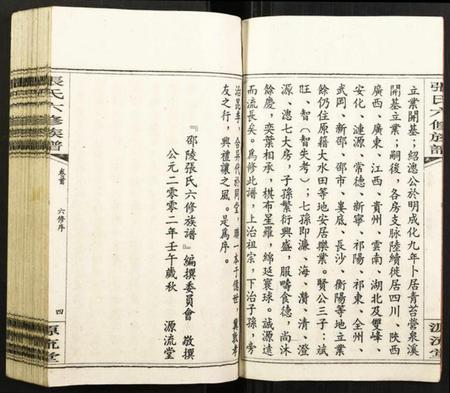 張氏六修族譜
源流堂
立業開基；紹滺公於明成化九年卜居青苔營泉溪
開基立業；嗣後，各房支脉陸續徙居四川、陜西
廣西、廣東、江西、貴州、雲南、湖北及雙峰、
安化、漣源、常德、新寧、祁陽、祁東、全州、
武岡、新邵、邵市、婁底、長沙、衡陽等地立業
餘仍住原籍大水田等地安居樂業。賢公三子：斌
旺、智（智失考）；七孫即濂、海、潛、清、澄
源、滺七大房，子孫繁衍興盛，服疇食德，尚沐
餘慶，奕葉相承，棋布星羅，綿延寰球。誠源遠
而流長矣。爲修此譜，上治祖宗，下治子孫，旁
治昆季，合异代於同堂，聯一本于億世，冀敦孝
友之行，興禮讓之風。是爲序。
『邵陵張氏六修族譜』編撰委員會　敬撰
公元二零零二年壬午歲秋　源流堂
張氏六修族譜
卷首
六修序
四
源流堂